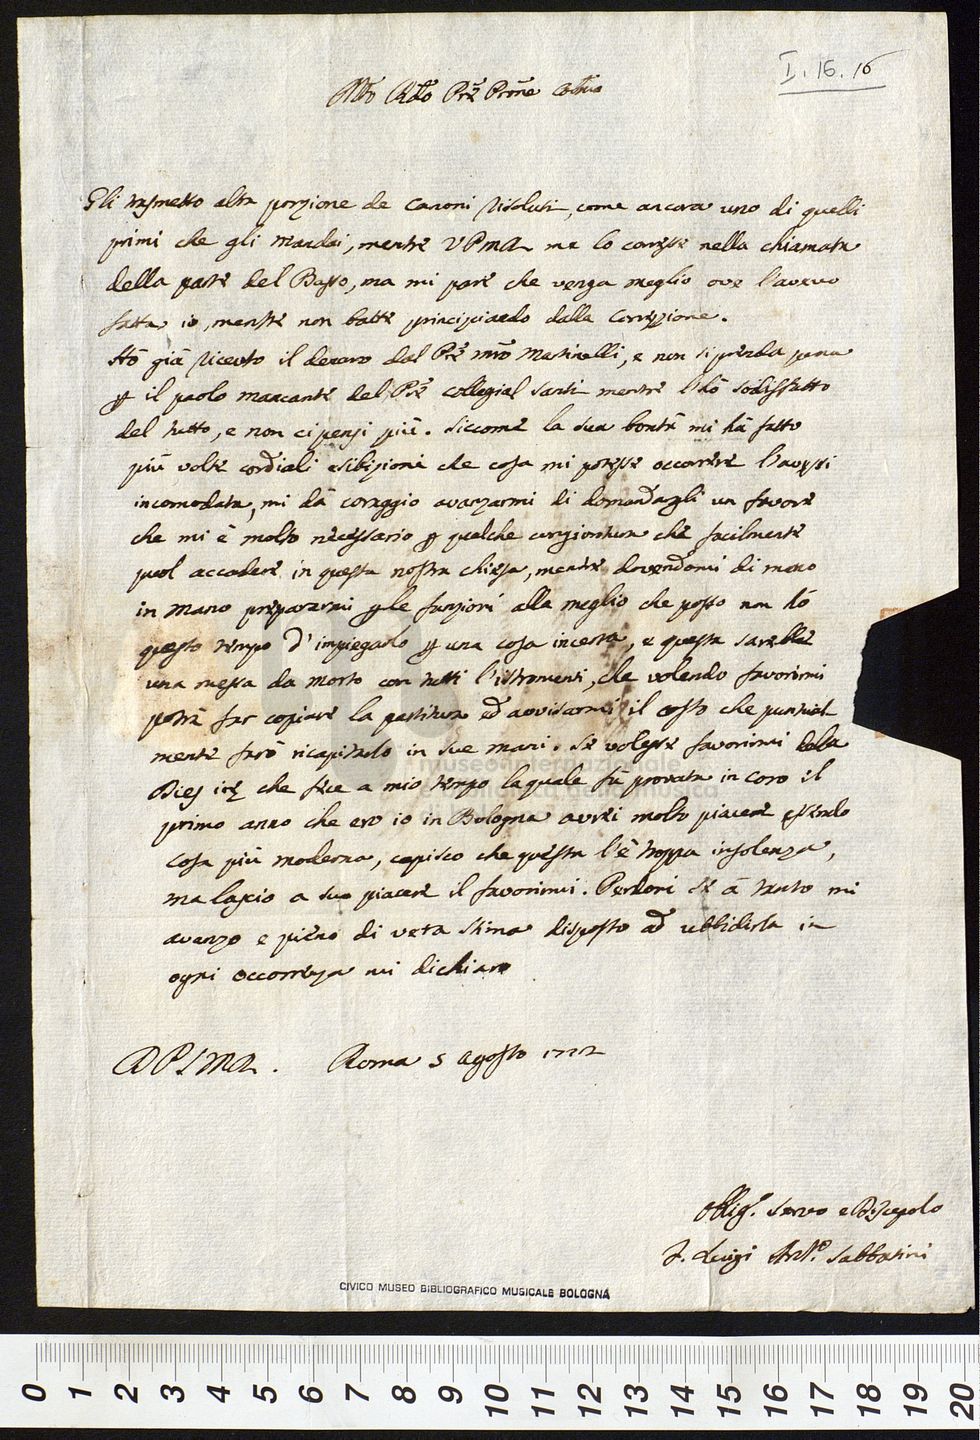 I. 16. 16
Mto Rdo Pre Prone Colmo
Gli trasmetto altra porzione de Canoni risoluti, come ancora uno di quelli
primi che gli mandai, mentre VPMR me lo coresse nella chiamata
della parte del Basso, ma mi pare che venga meglio ove l'avevo
fatta io, mentre non batte principiando dalla Correzione.
Hò già ricevto il denaro dal Pre mro Martinelli, e non si prenda pena
p il paolo mancante del Pre Collegial Santi mentre l'hò sodisfatto
del tutto, e non ci pensi più. Siccome la sua bontà mi hà fatto
più volte cordiali esibizioni che cosa mi potesse occorrere l'avessi
incomodata, mi dà coraggio avanzarmi di domandargli un favore
che mi è molto necessario p qualche congiontura che facilmente
puol accadere in questa nostra chiesa, mentre dovendomi di mano
in mano prepararmi p le funzioni alla meglio che posso non hò
questo tempo d'impiegarlo p una cosa incerta, e questa sarebbe
una messa da morto con tutti l'istromenti, che volendo favorirmi
potrà far copiare la partitura ed avvisarmi il costo che puntual
mente farò ricapitarlo in sue mani. Se volesse favorirmi della
Dies ire che fece a mio tempo la quale fù provata in coro il
primo anno che ero io in Bologna avrei molto piacere essendo
cosa più moderna, capisco che questa l'è troppa insolenza,
ma lascio a suo piacere il favorirmi. Perdoni se à tanto mi
avanzo e pieno di vera stima disposto ad ubbidirla in
ogni occorrenza mi dichiaro
D P.S.MR. Roma 5 Agosto 1772
Obblig. Servo e Discepolo
F. Luigi Anto. Sabbatini
museo internazionale
CIVICO MUSEO BIBLIOGRAFICO MUSICALE BOLOGNA
0 1 2 3 4 5 6 7 8 9 10 11 12 13 14 15 16 17 18 19 20